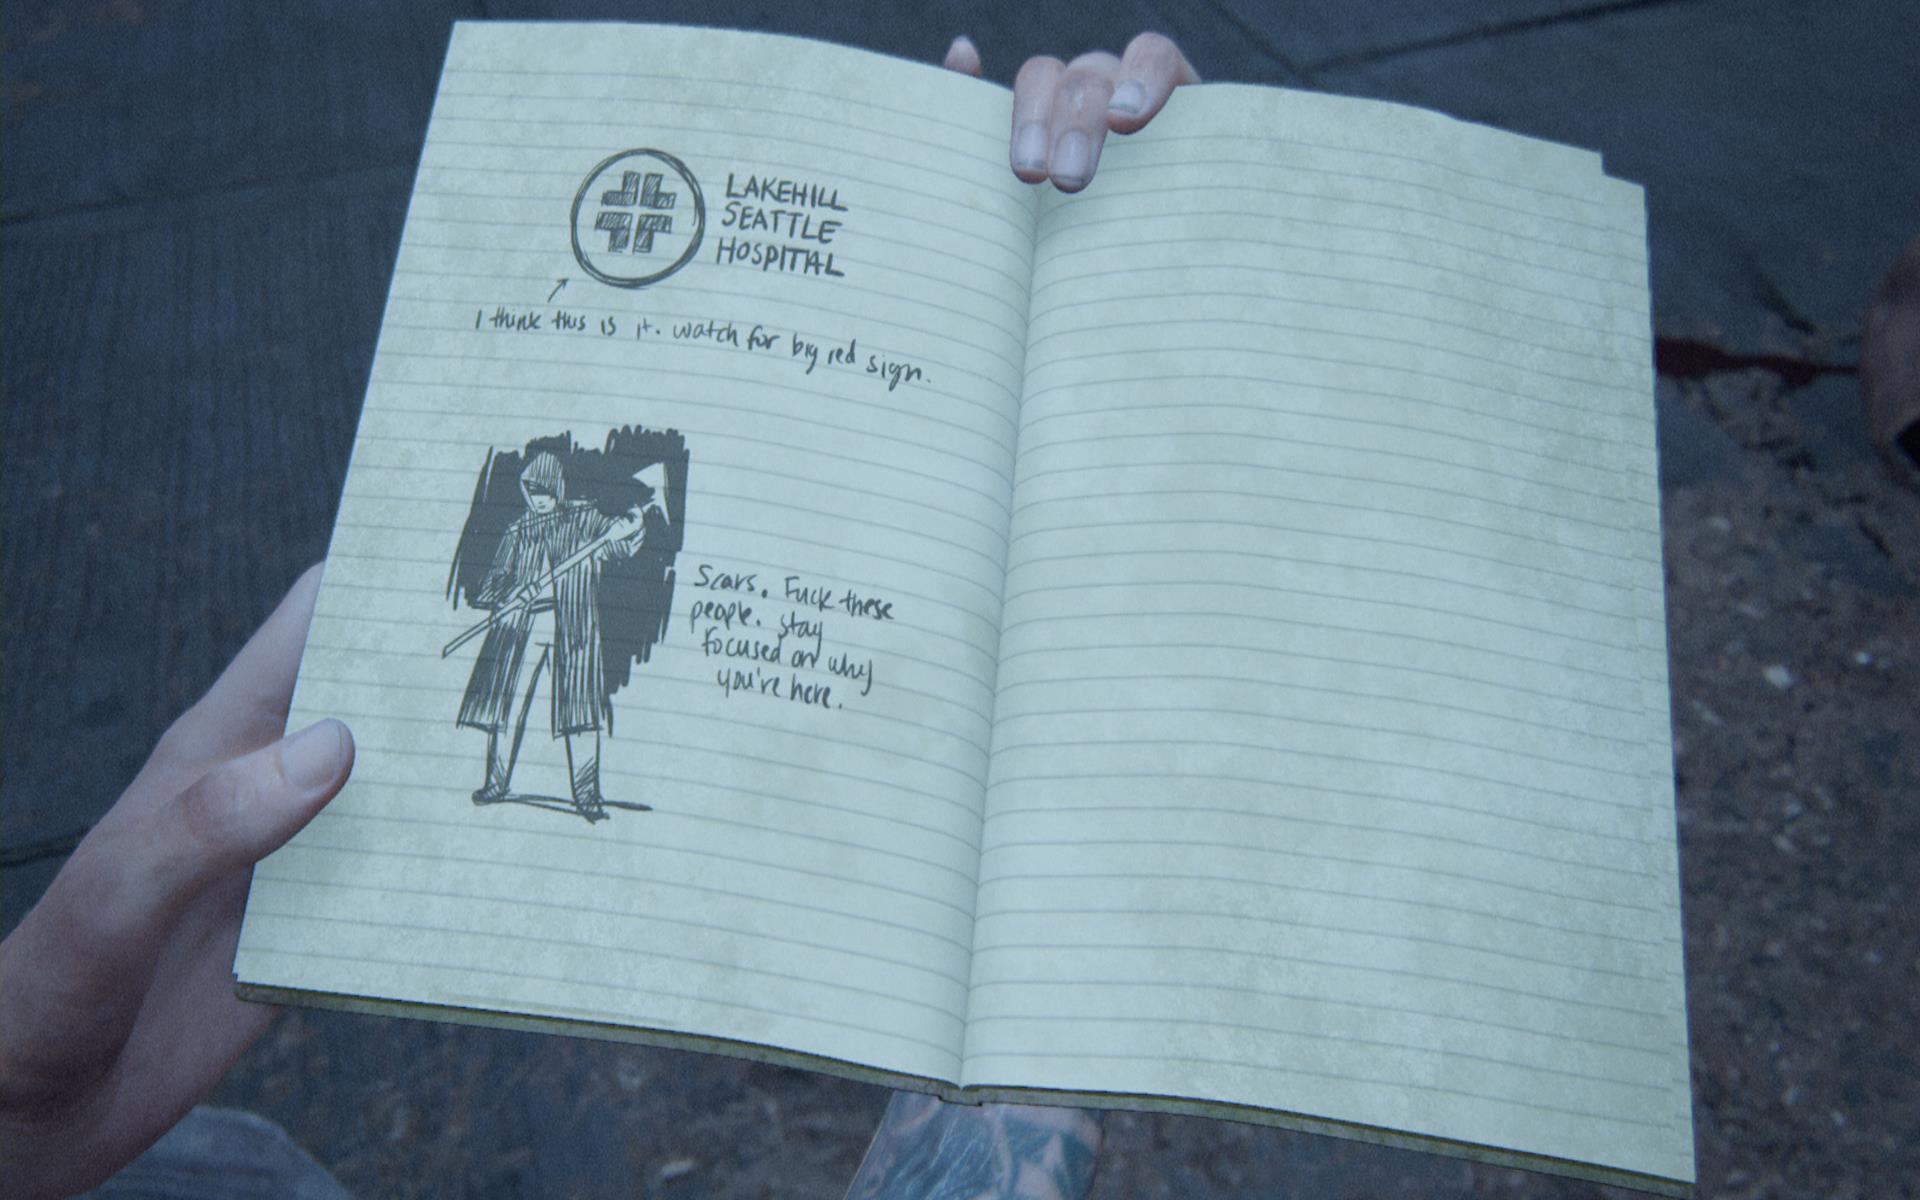 LAKEHILL
SEATTLE
HOSPITAL
I think this is it. watch for big red sign.
Scars. Fuck these
people. stay
focused on why
you're here.